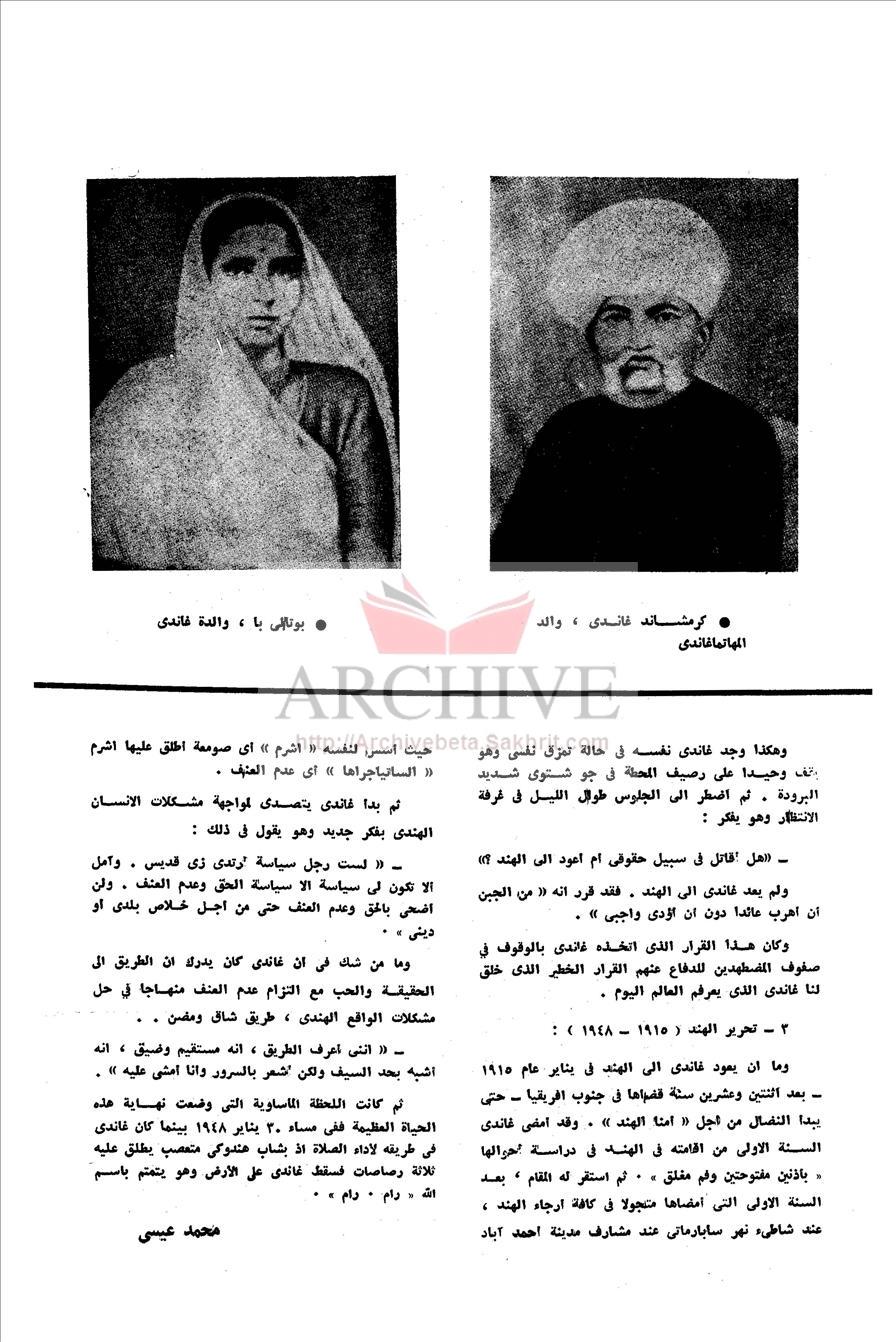 ● كرمشاند غاندى ، والد
المهاتماغاندى
● بوتالى با ، والدة غاندى
ARCHIVE
http://Archivebeta.Sakhrit.com
وهكذا وجد غاندى نفسه فى حالة تمزق نفسى وهو
يقف وحيدا على رصيف المحطة فى جو شتوى شديد
البرودة . ثم اضطر الى الجلوس طوال الليل فى غرفة
الانتظار وهو يفكر :
ـ «هل أقاتل فى سبيل حقوقى أم أعود الى الهند ؟»
ولم يعد غاندى الى الهند . فقد قرر انه « من الجبن
أن أهرب عائدا دون أن أؤدى واجبى » .
وكان هذا القرار الذى اتخذه غاندى بالوقوف في
صفوف المضطهدين للدفاع عنهم القرار الخطير الذى خلق
لنا غاندى الذى يعرفه العالم اليوم .
٣ ـ تحرير الهند ( ١٩١٥ ـ ١٩٤٨ ) :
وما ان يعود غاندى الى الهند في يناير عام ١٩١٥
ـ بعد اثنتين وعشرين سنة قضاها فى جنوب افريقيا ـ حتى
يبدأ النضال من أجل « أمنا الهند » . وقد أمضى غاندى
السنة الاولى من اقامته فى الهند فى دراسة أحوالها
« بأذنين مفتوحتين وفم مغلق » ٠ ثم استقر له المقام ، بعد
السنة الاولى التى أمضاها متجولا فى كافة أرجاء الهند ،
عند شاطىء نهر سابارماتى عند مشارف مدينة أحمد آباد
حيث أسس لنفسه « اشرم » أى صومعة أطلق عليها اشرم
« الساتياجراها » أى عدم العنف .
ثم بدأ غاندى يتصدى لمواجهة مشكلات الانسان
الهندى بفكر جديد وهو يقول فى ذلك :
ـ « لست رجل سياسة أرتدى زى قديس . وآمل
ألا تكون لى سياسة الا سياسة الحق وعدم العنف . ولن
أضحى بالحق وعدم العنف حتى من أجل خلاص بلدى أو
دينى » ٠
وما من شك فى أن غاندى كان يدرك ان الطريق الى
الحقيقة والحب مع التزام عدم العنف منهاجا في حل
مشكلات الواقع الهندى ، طريق شاق ومضن . .
ـ « اننى أعرف الطريق ، انه مستقيم وضيق ، انه
أشبه بحد السيف ولكن أشعر بالسرور وأنا أمشى عليه » .
ثم كانت اللحظة المأساوية التى وضعت نهاية هذه
الحياة العظيمة ففى مساء ٣٠ يناير ١٩٤٨ بينما كان غاندى
فى طريقه لأداء الصلاة اذ بشاب هندوكى متعصب يطلق عليه
ثلاثة رصاصات فسقط غاندى على الأرض وهو يتمتم باسم
الله « رام ٠ رام » ٠
محمد عيسى